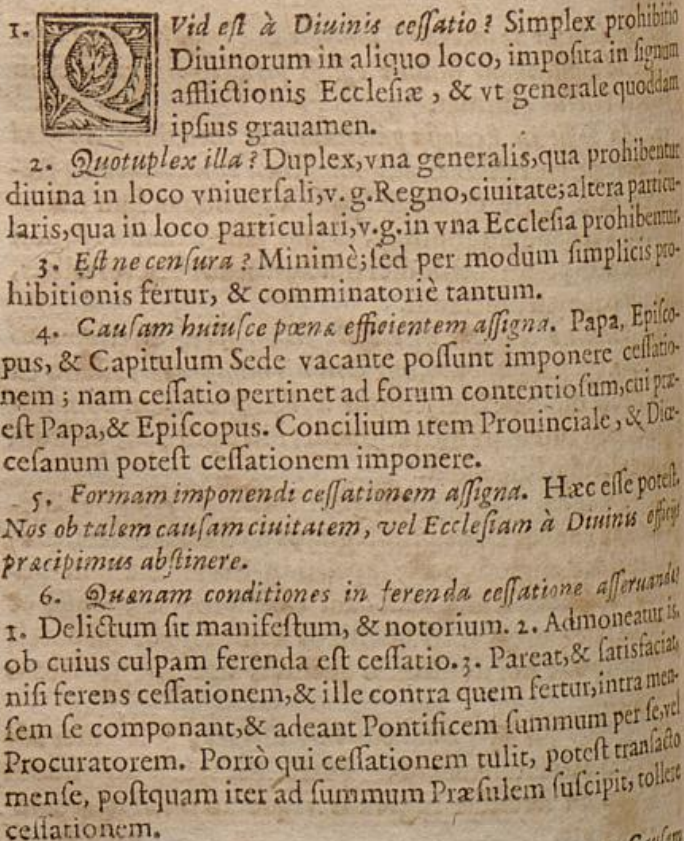 1. QVid eſt à Diuinis ceſſatio? Simplex prohibitio
Diuinorum in aliquo loco, impoſita in ſignum
afflictionis Eccleſiæ, & vt generale quoddam
ipſius grauamen.
2. Quotuplex illa? Duplex, vna generalis, qua prohibentur
diuina in loco vniuerſali, v. g. Regno, ciuitate; altera particu-
laris, qua in loco particulari, v. g. in vna Eccleſia prohibentur.
3. Eſt ne cenſura? Minimè; ſed per modum ſimplicis pro-
hibitionis fertur, & comminatoriè tantum.
4. Cauſam huiuſce pœnæ efficientem aſſigna. Papa, Epiſco-
pus, & Capitulum Sede vacante poſſunt imponere ceſſatio-
nem; nam ceſſatio pertinet ad forum contentioſum, cui præ-
eſt Papa, & Epiſcopus. Concilium item Prouinciale, & Diœ-
ceſanum poteſt ceſſationem imponere.
5. Formam imponendi ceſſationem aſſigna. Hæc eſſe poteſt.
Nos ob talem cauſam ciuitatem, vel Eccleſiam à Diuinis officijs
præcipimus abſtinere.
6. Quænam conditiones in ferenda ceſſatione aſſeruandæ?
1. Delictum ſit manifeſtum, & notorium. 2. Admoneatur is,
ob cuius culpam ferenda eſt ceſſatio. 3. Pareat, & ſatisfaciat,
niſi ferens ceſſationem, & ille contra quem fertur, intra men-
ſem ſe componant, & adeant Pontificem ſummum per ſe, vel
Procuratorem. Porrò qui ceſſationem tulit, poteſt tranſacto
menſe, poſtquam iter ad ſummum Præſulem ſuſcipit, tollere
ceſſationem.
Cauſam